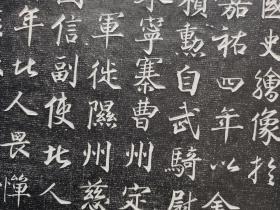 國史繪像於
嘉祐四年以金
積勳自武騎尉
永寧寨曹州定
軍徙隰州慈
信副使北人
年北人畏憚